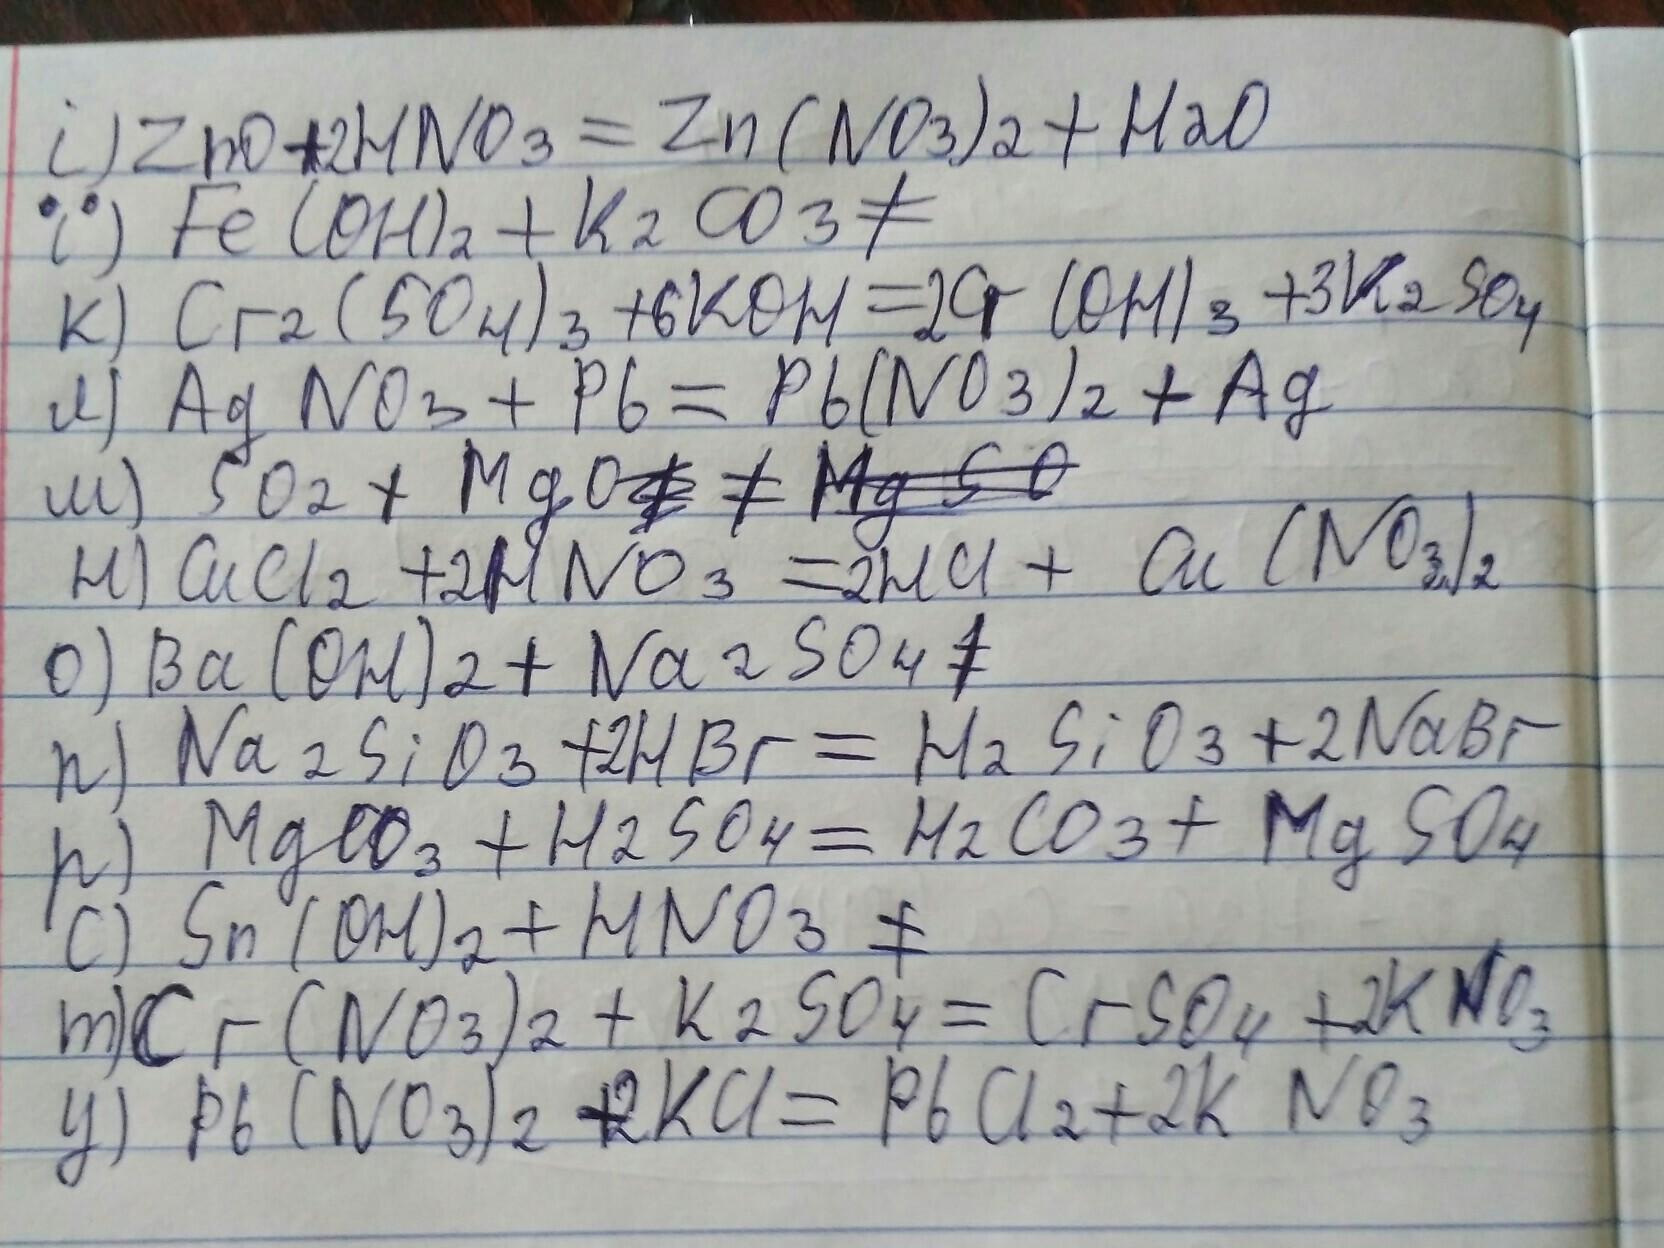 і) ZnO+2HNO3=Zn(NO3)2+H2O
ї) Fe(OH)2+K2CO3≠
к) Cr2(SO4)3+6KOH=2Cr(OH)3+3K2SO4
л) AgNO3+Pb=Pb(NO3)2+Ag
м) SO2+MgO≠ MgSO
н) CuCl2+2HNO3=2HCl+Cu(NO3)2
о) Ba(OH)2+Na2SO4≠
п) Na2SiO3+2HBr=H2SiO3+2NaBr
р) MgCO3+H2SO4=H2CO3+MgSO4
с) Sn(OH)2+HNO3≠
т) Cr(NO3)2+K2SO4=CrSO4+2KNO3
у) Pb(NO3)2+2KCl=PbCl2+2KNO3